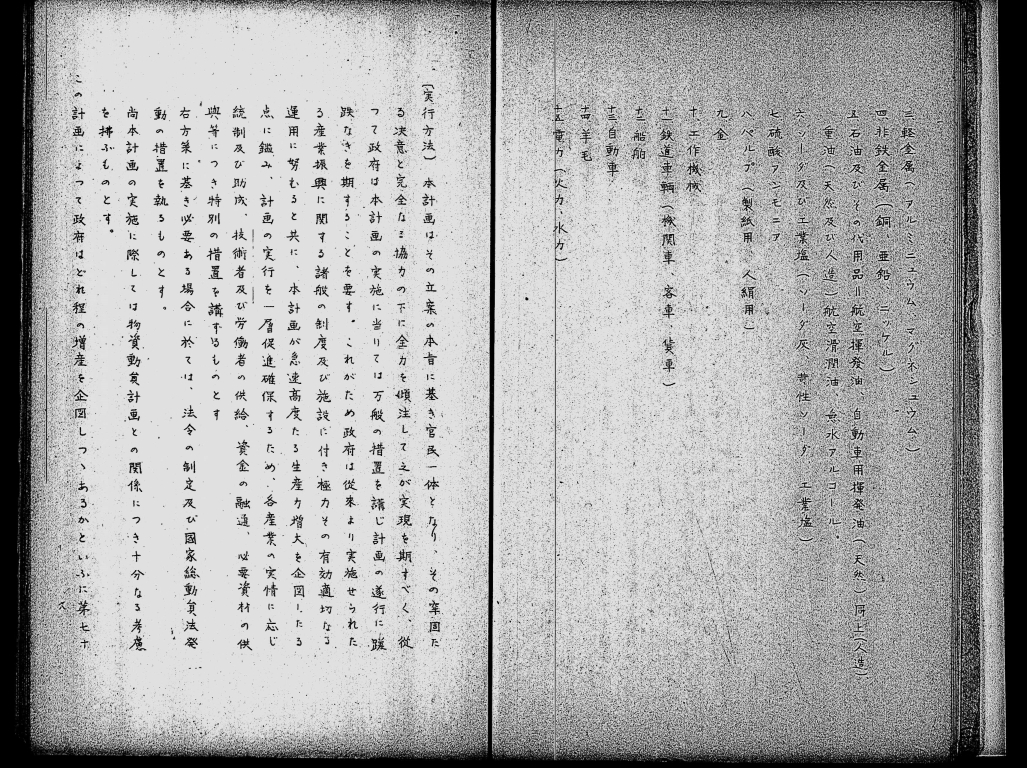 三、軽金属(アルミニュウム、マグネシュウム)
四、非鉄金属(銅、亜鉛、ニッケル)
五、石油及びその代用品=航空揮発油、自動車用揮発油(天然)同上(人造)
重油(天然及び人造)航空潤滑油、無水アルコール。
六、ソーダ及び工業塩(ソーダ灰、苛性ソーダ、工業塩)
七、硫酸アンモニア
八、パルプ(製紙用、人絹用)
九、金
十、工作機械
十一、鉄道車輌(機関車、客車、貨車)
十二、船舶
十三、自動車
十四、羊毛
十五、電力(火力、水力)
(実行方法) 本計画はその立案の本旨に基き官民一体となり、その牢固た
る決意と完全なる協力の下に全力を傾注して之が実現を期すべく、従
つて政府は本計画の実施に当りては万般の措置を講じ計画の遂行に蹉
跌なきを期することを要す。これがため政府は従来より実施せられた
る産業振興に関する諸般の制度及び施設に付き極力その有効適切なる
運用に努むると共に、本計画が急速高度たる生産力増大を企図したる
点に鑑み、計画の実行を一層促進確保するため、各産業の実情に応じ
統制及び助成、技術者及び労働者の供給、資金の融通、必要資材の供
与等につき特別の措置を講ずるものとす
右方策に基き必要ある場合に於ては、法令の制定及び国家総動員法発
動の措置を執るものとす。
尚本計画の実施に際しては物資動員計画との関係につき十分なる考慮
を拂ふものとす。
この計画によつて政府はどれ程の増産を企図しつゝあるかといふに第七十